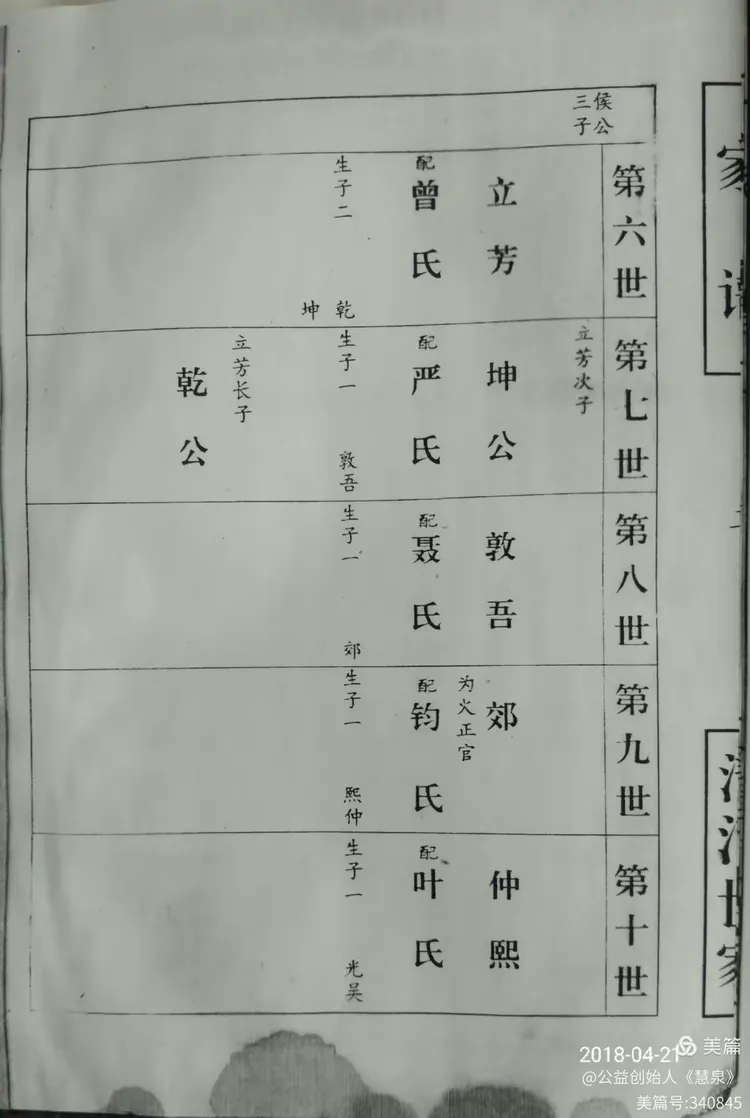 家谱
第六世
侯公
三子
立芳
配曾氏
生子二 乾
坤
第七世
立芳次子
坤公
配严氏
生子一 敦吾
立芳长子
乾公
第八世
敦吾
配聂氏
生子一 郊
第九世
郊
为火正官
配钧氏
生子一 熙仲
第十世
仲熙
配叶氏
生子一 光吴
2018-04-21
美篇
@公益创始人《慧泉》
美篇号:340845